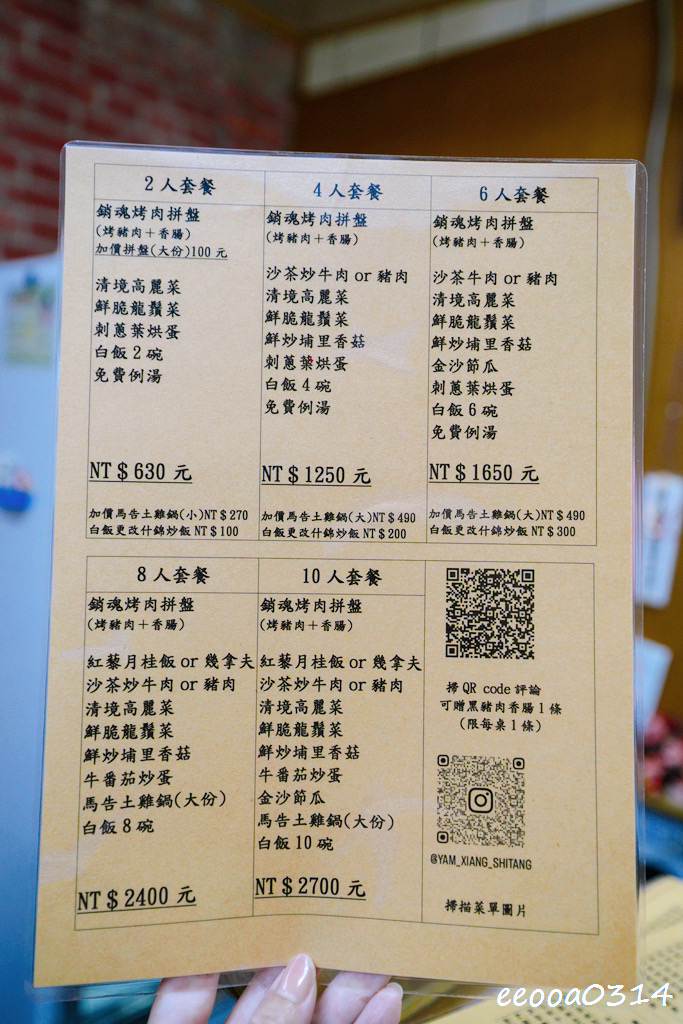 2人套餐
銷魂烤肉拼盤
(烤豬肉+香腸)
加價拼盤(大份)100元
清境高麗菜
鮮脆龍鬚菜
刺蔥葉烘蛋
白飯2碗
免費例湯
NT$630元
加價馬告土雞鍋(小)NT$270
白飯更改什錦炒飯 NT$100
4人套餐
銷魂烤肉拼盤
(烤豬肉+香腸)
沙茶炒牛肉 or 豬肉
清境高麗菜
鮮脆龍鬚菜
鮮炒埔里香菇
刺蔥葉烘蛋
白飯4碗
免費例湯
NT$1250元
加價馬告土雞鍋(大)NT$490
白飯更改什錦炒飯 NT$200
6人套餐
銷魂烤肉拼盤
(烤豬肉+香腸)
沙茶牛肉 or 豬肉
清境高麗菜
鮮脆龍鬚菜
鮮炒埔里香菇
金沙節瓜
刺蔥葉烘蛋
白飯6碗
免費例湯
NT$1650元
加價馬告土雞鍋(大)NT$490
白飯更改什錦炒飯 NT$300
8人套餐
銷魂烤肉拼盤
(烤豬肉+香腸)
紅藜月桂飯 or 幾拿夫
沙茶炒牛肉 or 豬肉
清境高麗菜
鮮脆龍鬚菜
鮮炒埔里香菇
牛番茄炒蛋
馬告土雞鍋(大份)
白飯8碗
NT$2400元
10人套餐
銷魂烤肉拼盤
(烤豬肉+香腸)
紅藜月桂飯 or 幾拿夫
沙茶炒牛肉 or 豬肉
清境高麗菜
鮮脆龍鬚菜
鮮炒埔里香菇
牛番茄炒蛋
金沙節瓜
馬告土雞鍋(大份)
白飯10碗
NT$2700元
掃 QR code 評論
可贈黑豬肉香腸1條
(限每桌1條)
@YAM_XIANG_SHITANG
掃描菜單圖片
eeooa0314